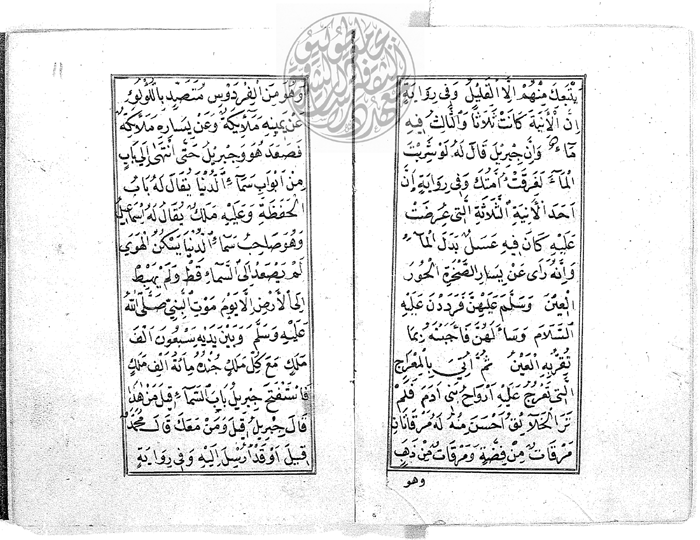 يَتْبَعَكَ مِنْهُمْ اِلَّا الْقَلِيْلُ وَفِي رِوَايَةٍ
اِنَّ الْآنِيَةَ كَانَتْ ثَلَاثًا وَالثَّالِثُ فِيهِ
مَاءٌ وَاَنَّ جِبْرِيلَ قَالَ لَهُ لَوْ شَرِبْتَ
الْمَاءَ لَغَرِقَتْ اُمَّتُكَ وَفِي رِوَايَةٍ اِنَّ
اَحَدَ الْآنِيَةِ الثَّلَاثَةِ الَّتِي عُرِضَتْ
عَلَيْهِ كَانَ فِيهِ عَسَلٌ بَدَلَ الْمَاءِ
وَاَنَّهُ رَاَى عَنْ يَسَارِ الصَّخْرَةِ الْحُوْرَ
الْعِيْنَ وَسَلَّمَ عَلَيْهِنَّ فَرَدَدْنَ عَلَيْهِ
السَّلَامَ وَسَاَلَهُنَّ فَاَجَبْنَهُ بِمَا
تَقَرُّ بِهِ الْعَيْنُ ثُمَّ اُتِيَ بِالْمِعْرَاجِ
الَّتِي تَعْرُجُ عَلَيْهِ اَرْوَاحُ بَنِي اٰدَمَ فَلَمْ
تَرَ الْخَلَايِقُ اَحْسَنَ مِنْهُ لَهُ مَرْقَاتَانِ
مَرْقَاتٌ مِنْ فِضَّةٍ وَمَرْقَاتٌ مِنْ ذَهَبٍ
وهو
١١
وَهُوَ مِنَ الْفِرْدَوْسِ مُنَضَّدٍ بِاللُّؤْلُؤِ
عَنْ يَمِيْنِهِ مَلَائِكَةٌ وَعَنْ يَسَارِهِ مَلَائِكَةٌ
فَصَعَدَ هُوَ وَجِبْرِيلُ حَتَّى انْتَهَى اِلَى بَابٍ
مِنْ اَبْوَابِ سَمَاءِ الدُّنْيَا يُقَالُ لَهُ بَابُ
الْحَفَظَةِ وَعَلَيْهِ مَلَكٌ يُقَالُ لَهُ اِسْمَاعِيلُ
وَهُوَ صَاحِبُ سَمَاءِ الدُّنْيَا يَسْكُنُ الْهَوَى
لَمْ يَصْعَدْ اِلَى السَّمَاءِ قَطُّ وَلَمْ يَهْبِطْ
اِلَى الْاَرْضِ اِلَّا يَوْمَ مَوْتِ النَّبِيِّ صَلَّى اللهُ
عَلَيْهِ وَسَلَّمَ وَبَيْنَ يَدَيْهِ سَبْعُونَ اَلْفَ
مَلَكٍ مَعَ كُلِّ مَلَكٍ جُنْدُهُ مِائَةُ اَلْفِ مَلَكٍ
فَاسْتَفْتَحَ جِبْرِيلُ بَابَ السَّمَاءِ قِيْلَ مَنْ هَذَا
قَالَ جِبْرِيلُ قِيْلَ وَمَنْ مَعَكَ قَالَ مُحَمَّدٌ
قِيْلَ اَوَقَدْ اُرْسِلَ اِلَيْهِ وَفِي رِوَايَةٍ